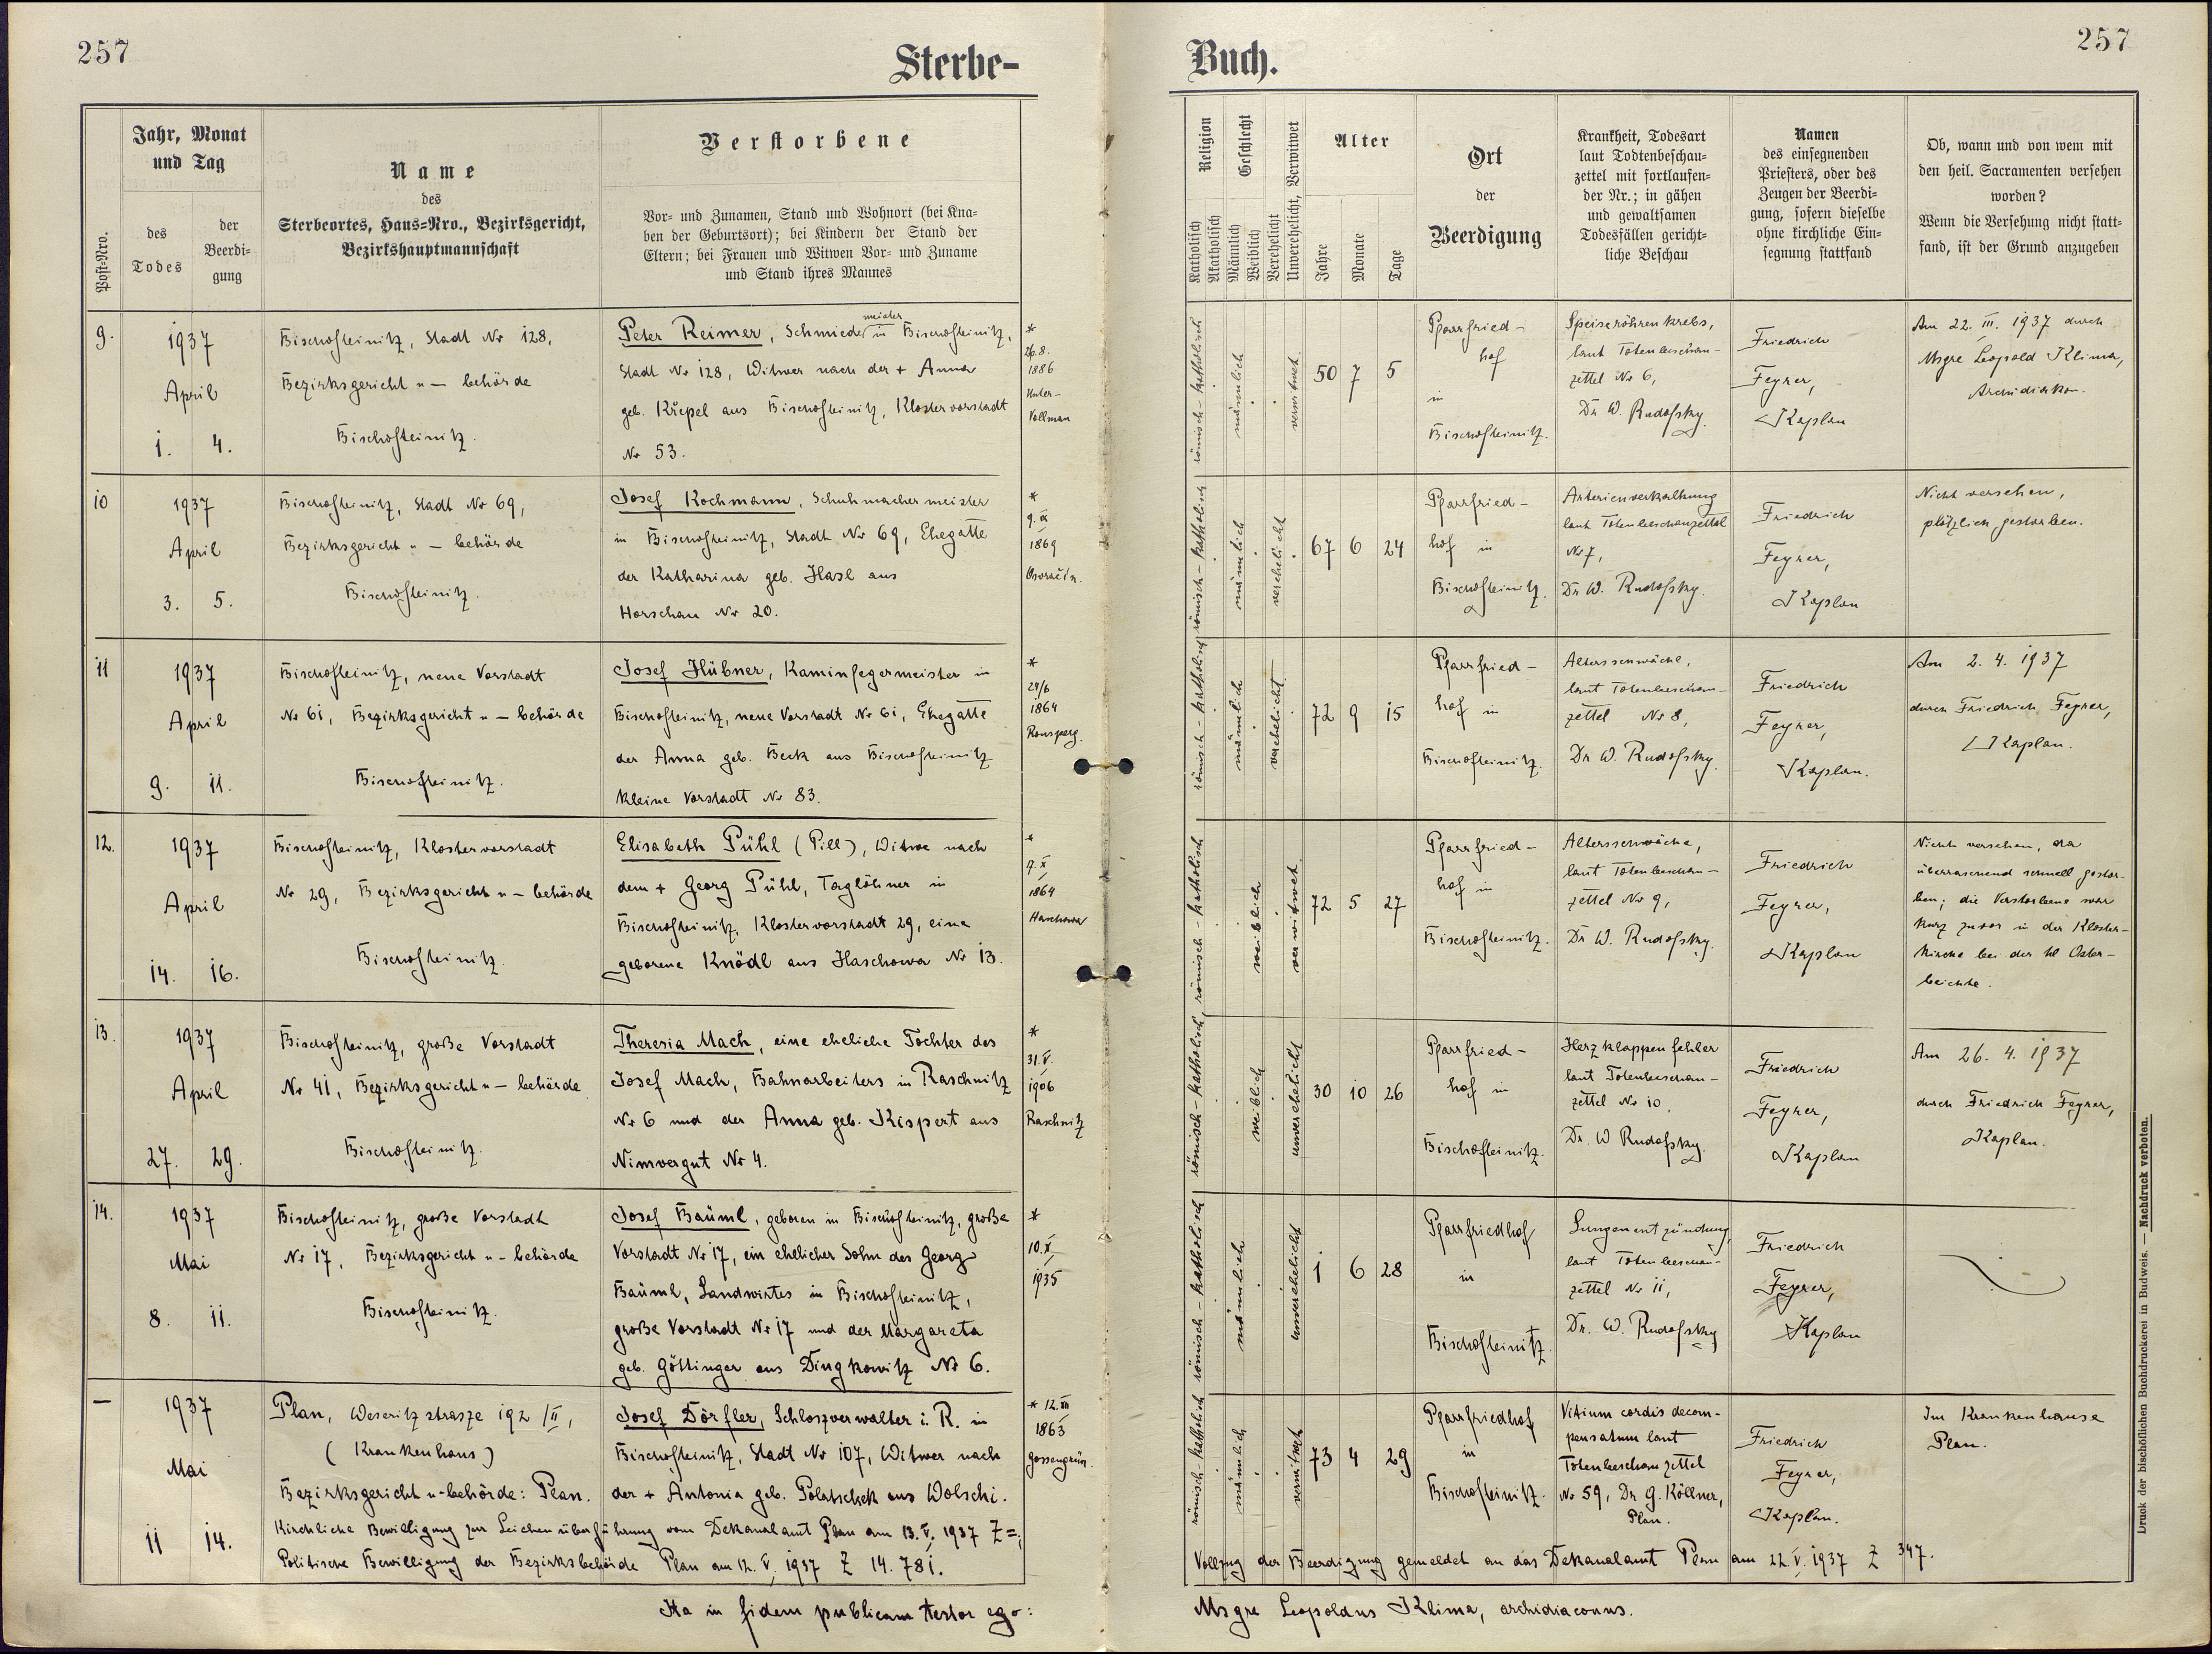 257
Sterbe-
Buch.
257
Post-Nro.
Jahr, Monat
und Tag
des
Todes
der
Beerdi-
gung
Name
des
Sterbeortes, Haus-Nro., Bezirksgericht,
Bezirkshauptmannschaft
Verstorbene
Vor- und Zunamen, Stand und Wohnort (bei Kna-
ben der Geburtsort); bei Kindern der Stand der
Eltern; bei Frauen und Witwen Vor- und Zuname
und Stand ihres Mannes
Religion
Katholisch
Akatholisch
Geschlecht
Männlich
Weiblich
Verehelicht
Unverehelicht, Verwitwet
Alter
Jahre
Monate
Tage
Ort
der
Beerdigung
Krankheit, Todesart
laut Todtenbeschau-
zettel mit fortlaufen-
der Nr.; in gähen
und gewaltsamen
Todesfällen gericht-
liche Beschau
Namen
des einsegnenden
Priesters, oder des
Zeugen der Beerdi-
gung, sofern dieselbe
ohne kirchliche Ein-
segnung stattfand
Ob, wann und von wem mit
den heil. Sacramenten versehen
worden?
Wenn die Versehung nicht statt-
fand, ist der Grund anzugeben
9.
1937
April
1. 4.
Bischofteinitz, Stadt Nr 128,
Bezirksgericht u - behörde
Bischofteinitz.
meister
Peter Reimer, Schmiede in Bischofteinitz,
Stadt Nr 128, Witwer nach der + Anna
geb. Křepel aus Bischofteinitz, Klostervorstadt
Nr 53.
*
26.8.
1886
Unter-
Vollmau
römisch-katholisch
männlich
verwitwet
50 7 5
Pfarrfried-
hof
in
Bischofteinitz.
Speiseröhrenkrebs,
laut Totenbeschau-
zettel Nr 6,
Dr W. Rudofsky.
Friedrich
Feyrer,
Kaplan
Am 22. III. 1937 durch
Msgre Leopold Klima,
Archidiakon.
10
1937
April
3. 5.
Bischofteinitz, Stadt Nr 69,
Bezirksgericht u - behörde
Bischofteinitz.
Josef Kochmann, Schuhmachermeister
in Bischofteinitz, Stadt Nr 69, Ehegatte
der Katharina geb. Hasl aus
Horschau Nr 20.
*
9. IX
1869
Osvračin.
römisch-katholisch
männlich
verehelicht
67 6 24
Pfarrfried-
hof in
Bischofteinitz.
Arterienverkalkung
laut Totenbeschauzettel
Nr 7,
Dr W. Rudofsky.
Friedrich
Feyrer,
Kaplan
Nicht versehen,
plötzlich gestorben.
11
1937
April
9. 11.
Bischofteinitz, neue Vorstadt
Nr 61, Bezirksgericht u - behörde
Bischofteinitz.
Josef Hübner, Kaminfegermeister in
Bischofteinitz, neue Vorstadt Nr 61, Ehegatte
der Anna geb. Beck aus Bischofteinitz
kleine Vorstadt Nr 83.
*
24/6
1864
Ronsperg.
römisch-katholisch
männlich
verehelicht
72 9 15
Pfarrfried-
hof in
Bischofteinitz.
Altersschwäche,
laut Totenbeschau-
zettel Nr 8,
Dr W. Rudofsky.
Friedrich
Feyrer,
Kaplan.
Am 2. 4. 1937
durch Friedrich Feyrer,
Kaplan.
12.
1937
April
14. 16.
Bischofteinitz, Klostervorstadt
Nr 29, Bezirksgericht u - behörde
Bischofteinitz.
Elisabeth Pühl (Pill), Witwe nach
dem + Georg Pühl, Taglöhner in
Bischofteinitz, Klostervorstadt 29, eine
geborene Knödl aus Haschowa Nr 13.
*
1864
Haschowa
römisch-katholisch
weiblich
verwitwet
72 5 27
Pfarrfried-
hof in
Bischofteinitz.
Altersschwäche,
laut Totenbeschau-
zettel Nr 9,
Dr W. Rudofsky.
Friedrich
Feyrer,
Kaplan
Nicht versehen, da
überraschend schnell gestor-
ben; die Verstorbene war
kurz zuvor in der Kloster-
kirche bei der hl Oster-
beichte.
13.
1937
April
27. 29.
Bischofteinitz, große Vorstadt
Nr 41, Bezirksgericht u - behörde
Bischofteinitz.
Theresia Mach, eine eheliche Tochter des
Josef Mach, Bahnarbeiters in Raschnitz
Nr 6 und der Anna geb. Kispert aus
Nimvorgut Nr 4.
*
31. V.
1906
Raschnitz
römisch-katholisch
weiblich
unverehelicht
30 10 26
Pfarrfried-
hof in
Bischofteinitz.
Herzklappenfehler
laut Totenbeschau-
zettel Nr 10,
Dr. W Rudofsky.
Friedrich
Feyrer,
Kaplan
Am 26. 4. 1937
durch Friedrich Feyrer,
Kaplan.
14.
1937
Mai
8. 11.
Bischofteinitz, große Vorstadt
Nr 17, Bezirksgericht u - behörde
Bischofteinitz.
Josef Bäuml, geboren in Bischofteinitz, große
Vorstadt Nr 17, ein ehelicher Sohn des Georg
Bäuml, Landwirtes in Bischofteinitz,
große Vorstadt Nr 17 und der Margareta
geb. Göttinger aus Dingkowitz Nr 6.
*
10. X
1935
römisch-katholisch
männlich
unverehelicht
1 6 28
Pfarrfriedhof
in
Bischofteinitz.
Lungenentzündung,
laut Totenbeschau-
zettel Nr 11,
Dr. W. Rudofsky
Friedrich
Feyrer,
Kaplan
—
1937
Mai
11 14.
Plan, Weseritzstrasze 192/II,
(Krankenhaus)
Bezirksgericht u-behörde: Plan.
Josef Dörfler, Schloszverwalter i. R. in
Bischofteinitz, Stadt Nr 107, Witwer nach
der + Antonia geb. Polatschek aus Wolschi.
* 12. XII
1863
Gossengrün.
Kirchliche Bewilligung zur Leichenüberführung vom Dekanalamt Plan am 13. V. 1937 Z=;
Politische Bewilligung der Bezirksbehörde Plan am 12. V. 1937 Z 14.781.
römisch-katholisch
männlich
verwitwet
73 4 29
Pfarrfriedhof
in
Bischofteinitz.
Vitium cordis decom-
pensatum laut
Totenbeschauzettel
Nr 59, Dr G. Köllner,
Plan.
Friedrich
Feyrer,
Kaplan.
Im Krankenhause
Plan.
Vollzug der Beerdigung gemeldet an das Dekanalamt Plan am 22. V. 1937 Z 347.
Ita in fidem publicam testor ego:
Msgre Leopoldus Klima, archidiaconus.
Druck der bischöflichen Buchdruckerei in Budweis. — Nachdruck verboten.